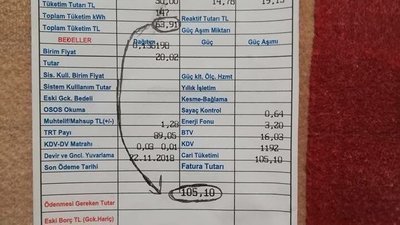 Tüketim Tutarı TL 50,00 14,78 19,15
Toplam Tüketim kWh 147 Reaktif Tutarı TL
Toplam Tüketim TL 63,91 Güç Aşım Miktarı
BEDELLER Dağıtım Güç Güç Aşımı
Birim Fiyat 0,136190
Tutar 20,02
Sis. Kull. Birim Fiyat Güç kit. Ölç. Hzmt
Sistem Kullanım Tutar Yıllık İşletim
Eski Gck. Bedeli Kesme-Bağlama
OSOS Okuma Sayaç Kontrol 0,64
Muhtelif/Mahsup TL(+/-) 1,28 Enerji Fonu 3,20
TRT Payı 89,05 BTV 16,03
KDV-DV Matrahı 0,03 0,01 KDV 1192
Devir ve Gncl. Yuvarlama 22.11.2018 Cari Tüketimi 105,10
Son Ödeme Tarihi Fatura Tutarı
105,10
Ödenmesi Gereken Tutar
Eski Borç TL (Gck.Hariç)